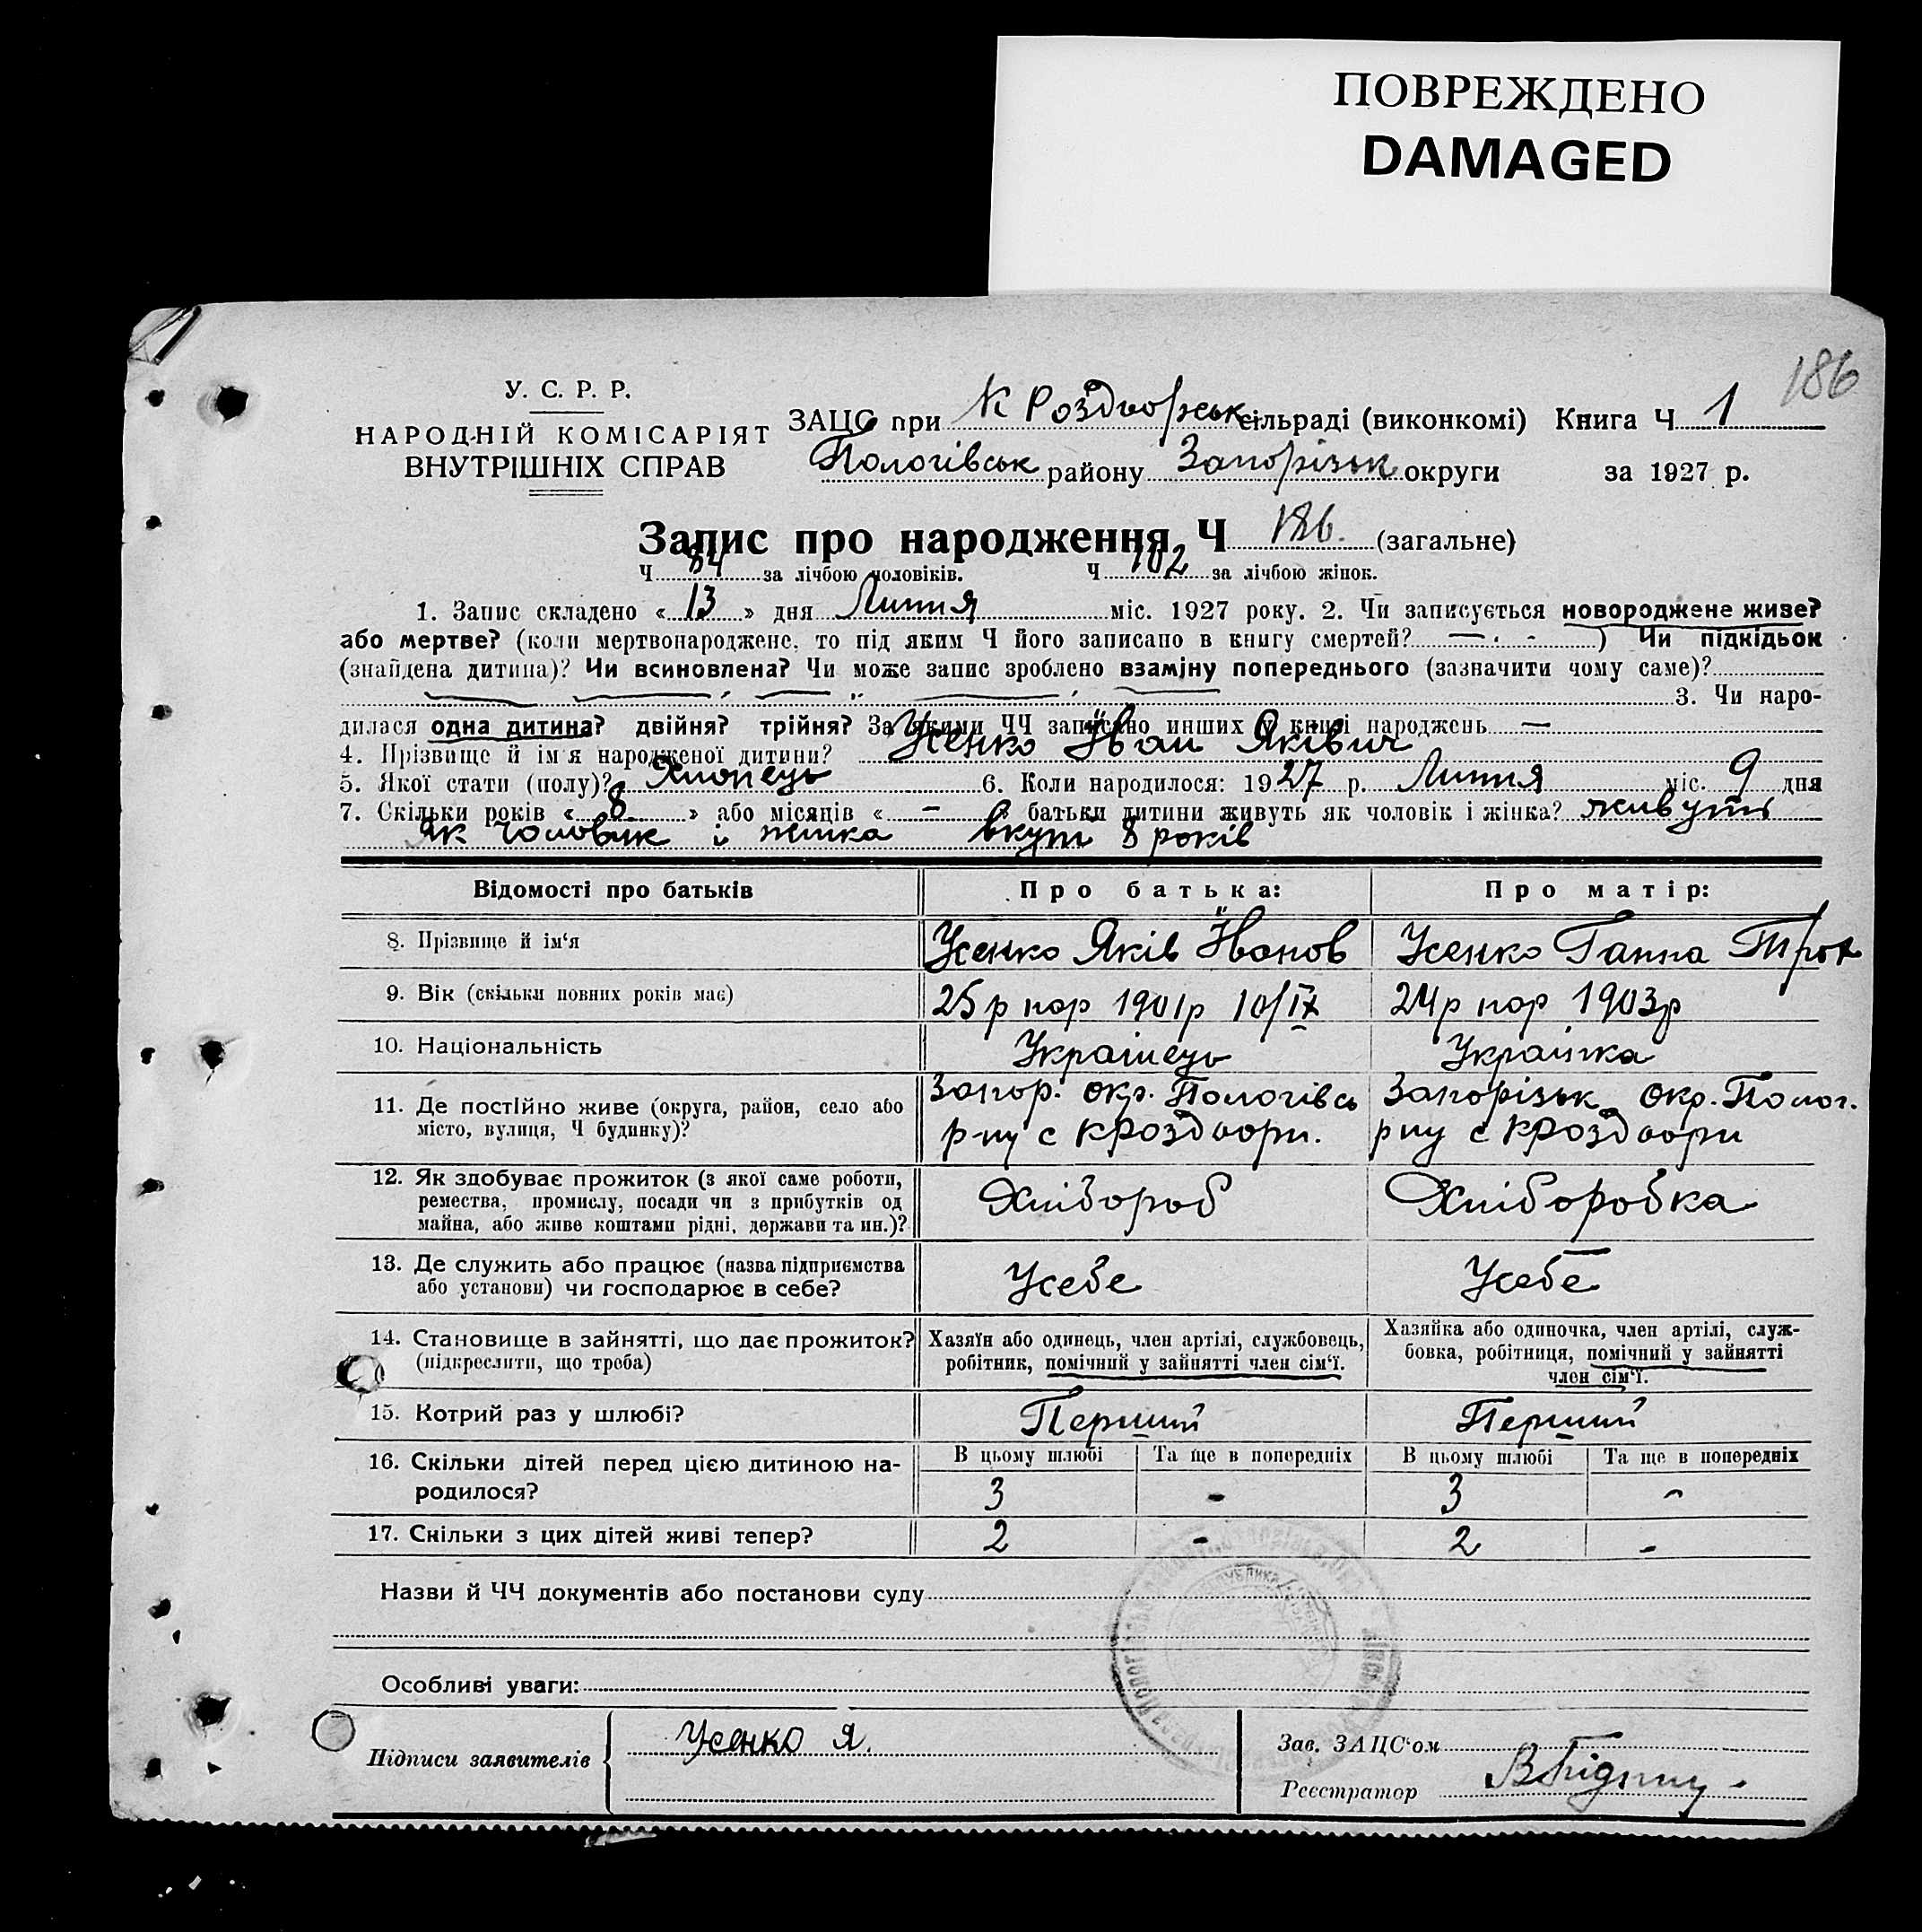 ПОВРЕЖДЕНО
DAMAGED
186
У. С. Р. Р.
НАРОДНІЙ КОМІСАРІЯТ
ВНУТРІШНІХ СПРАВ
ЗАЦС при К Роздорськ сільраді (виконкомі) Книга Ч 1
Пологівськ району Запорізьк округи за 1927 р.
Запис про народження Ч 186. (загальне)
Ч 84 за лічбою чоловіків. Ч 102 за лічбою жінок.
1. Запис складено « 13 » дня Липня міс. 1927 року. 2. Чи записується новороджене живе?
або мертве? (коли мертвонароджене, то під яким Ч його записано в книгу смертей? — · - ) Чи підкідьок
(знайдена дитина)? Чи всиновлена? Чи може запис зроблено взаміну попереднього (зазначити чому саме)?
3. Чи наро-
дилася одна дитина? двійня? трійня? За якими ЧЧ записано инших у книзі народжень —
4. Прізвище й ім'я народженої дитини? Усенко Іван Яківич
5. Якої стати (полу)? Хлопець 6. Коли народилося: 1927 р. Липня міс. 9 дня
7. Скільки років « 8 » або місяців « – батьки дитини живуть як чоловік і жінка? живуть
як чоловік і жінка вкупі 8 років
Відомості про батьків Про батька: Про матір:
8. Прізвище й ім'я Усенко Яків Іванов Усенко Ганна Трох
9. Вік (скільки повних років має) 25 р нар 1901р 10/IX 24р нар 1903р
10. Національність Українець Українка
11. Де постійно живе (округа, район, село або Запор. окр. Пологівсь Запорізьк окр. Полог.
місто, вулиця, Ч будинку)? р-ну с КРоздори. р ну с КРоздори
12. Як здобуває прожиток (з якої саме роботи,
ремества, промислу, посади чи з прибутків од Хлібороб Хліборобка
майна, або живе коштами рідні, держави та ин.)?
13. Де служить або працює (назва підприємства
або установи) чи господарює в себе? Усебе Усебе
14. Становище в зайнятті, що дає прожиток? Хазяїн або одинець, член артілі, службовець, Хазяйка або одиночка, член артілі, служ-
(підкреслити, що треба) робітник, помічний у зайнятті член сім'ї. бовка, робітниця, помічний у зайнятті
член сім'ї.
15. Котрий раз у шлюбі? Перший Перший
16. Скільки дітей перед цією дитиною на- В цьому шлюбі Та ще в попередніх В цьому шлюбі Та ще в попередніх
родилося? 3 - 3 -
17. Скільки з цих дітей живі тепер? 2 - 2 -
Назви й ЧЧ документів або постанови суду
Особливі уваги:
Підписи заявителів Усенко Я.
Зав. ЗАЦС'ом
Реєстратор